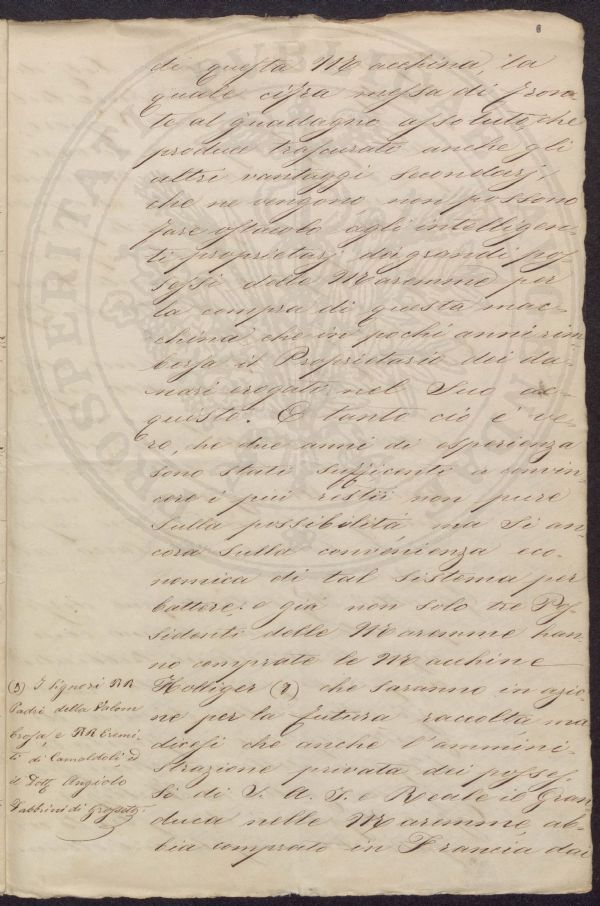 6
di questa Macchina, la
quale cifra messa di fron-
te al guadagno assoluto, che
produce trascurato anche gli
altri vantaggi secondarj,
che ne vengono non possono
fare ostacolo agli intelligen-
ti proprietarj dei grandi pos-
sessi delle Maremme per
la compra di questa mac-
china, che in pochi anni rim-
borsa il Proprietario dei da-
nari erogati nel Suo ac-
quisto. E tanto ciò è ve-
ro, che due anni di esperienza
sono stati sufficente a convin-
cere i più restii non pure
sulla possibilità, ma si an-
cora sulla convenienza eco-
nomica di tal sistema per
battere: e già non solo tre Pos-
sidenti delle Maremme han-
no comprate le Macchine
che saranno in azio-
ne per la futura raccolta ma
dicesi che anche l'ammini-
strazione privata dei posses-
si di S. A. I. e Reale il Gran-
duca nelle Maremme, ab-
bia comprato in Francia dai
I Signori RR
Padri della Valom
brosa, e RR Eremi
ti di Camaldoli ed
il Dott Angiolo
di Grosseto
PROSPERITATI PUBLICAE AUGENDAE